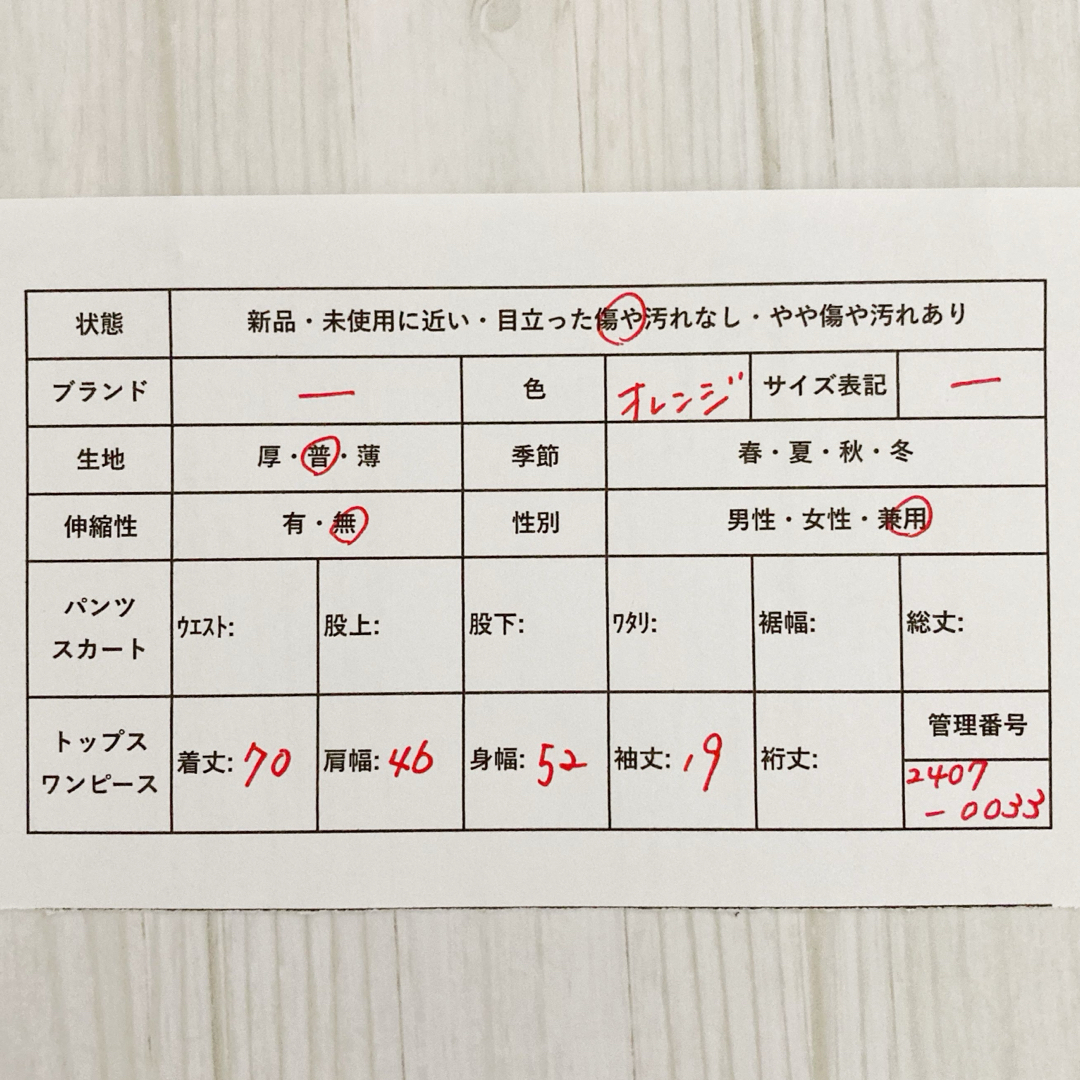 状態 新品・未使用に近い・目立った傷や汚れなし・やや傷や汚れあり
ブランド ー 色 オレンジ サイズ表記 ー
生地 厚・普・薄 季節 春・夏・秋・冬
伸縮性 有・無 性別 男性・女性・兼用
パンツ
スカート
ウエスト: 股上: 股下: ワタリ: 裾幅: 総丈:
トップス
ワンピース
着丈: 70 肩幅: 46 身幅: 52 袖丈: 19 裄丈:
管理番号
2407
-0033